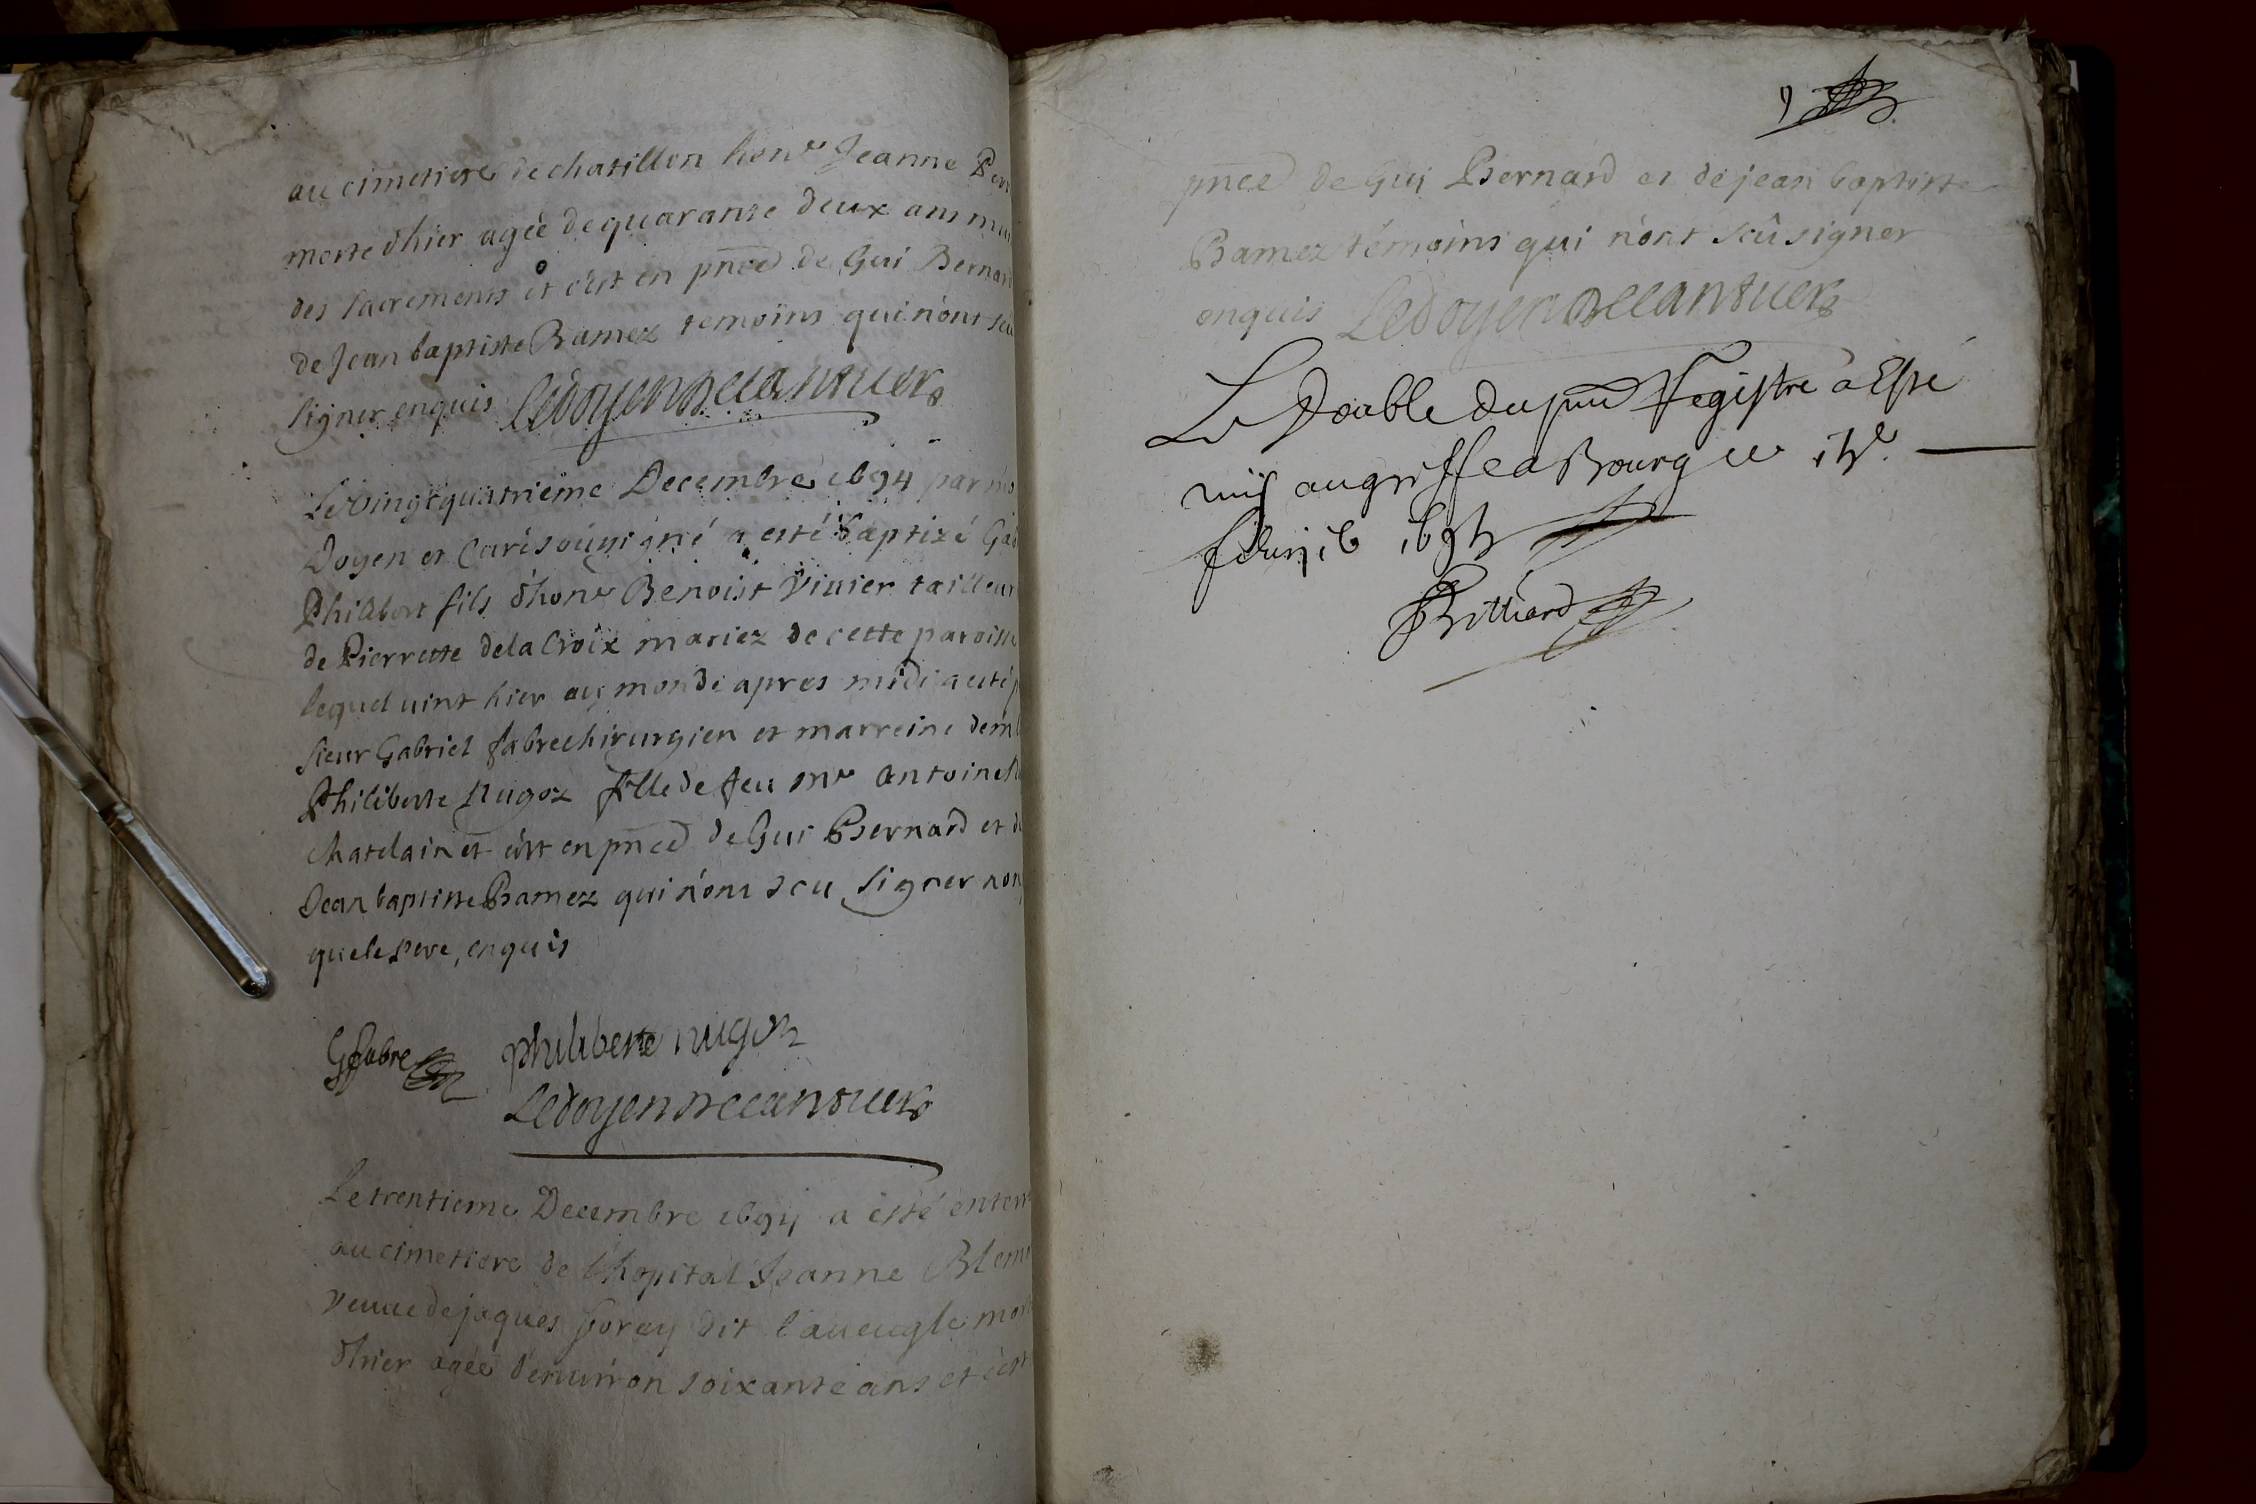 au cimetiere de chatillon hon.e Jeanne
morte d'hier agée de quarante deux ans
des sacrements et c'est en pnce de Gui Bernard
de Jean baptiste Bamez temoins qui n'ont sçu
signer enquis Ledoyen Decandues
Le vingt quatrième Decembre 1694 par
Doyen et Curé soussigné a esté baptizé
Philibert fils d'hon.e Benoist Vivier tailleur
de Pierrette dela Croix mariez de cette paroisse
lequel vint hier au monde apres midi a esté
sieur Gabriel fabre chirurgien et marreine
Philiberte Nugoz fille de feu Mr Antoine
chatelain et c'est en pnce de Gui Bernard et de
Jean baptiste Bamez qui n'ont sçu signer non
que le pere, enquis
G fabre philiberte nugoz
Ledoyen Decandues
Le trentieme Decembre 1694 a esté
au cimetiere de l'hopital Jeanne
veuve de jaques forey dit l'aveugle
d'hier agée d'environ soixante ans et c'est
9
pnce de Gui Bernard et de jean baptiste
Bamez témoins qui n'ont sçû signer
enquis Ledoyen Decandues
Le Double du pnt Registre a esté
mis au greffe a Bourg ce
Billiard